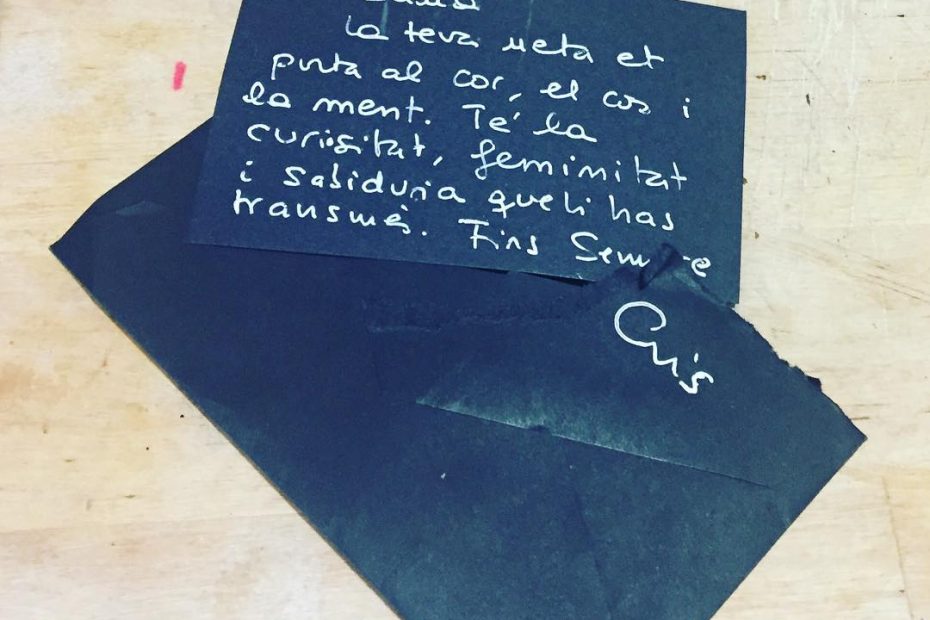 la teva neta et
porta al cor, el cos i
la ment. Té la
curiositat, feminitat
i sabiduria que li has
transmès. Fins Sempre
Cris